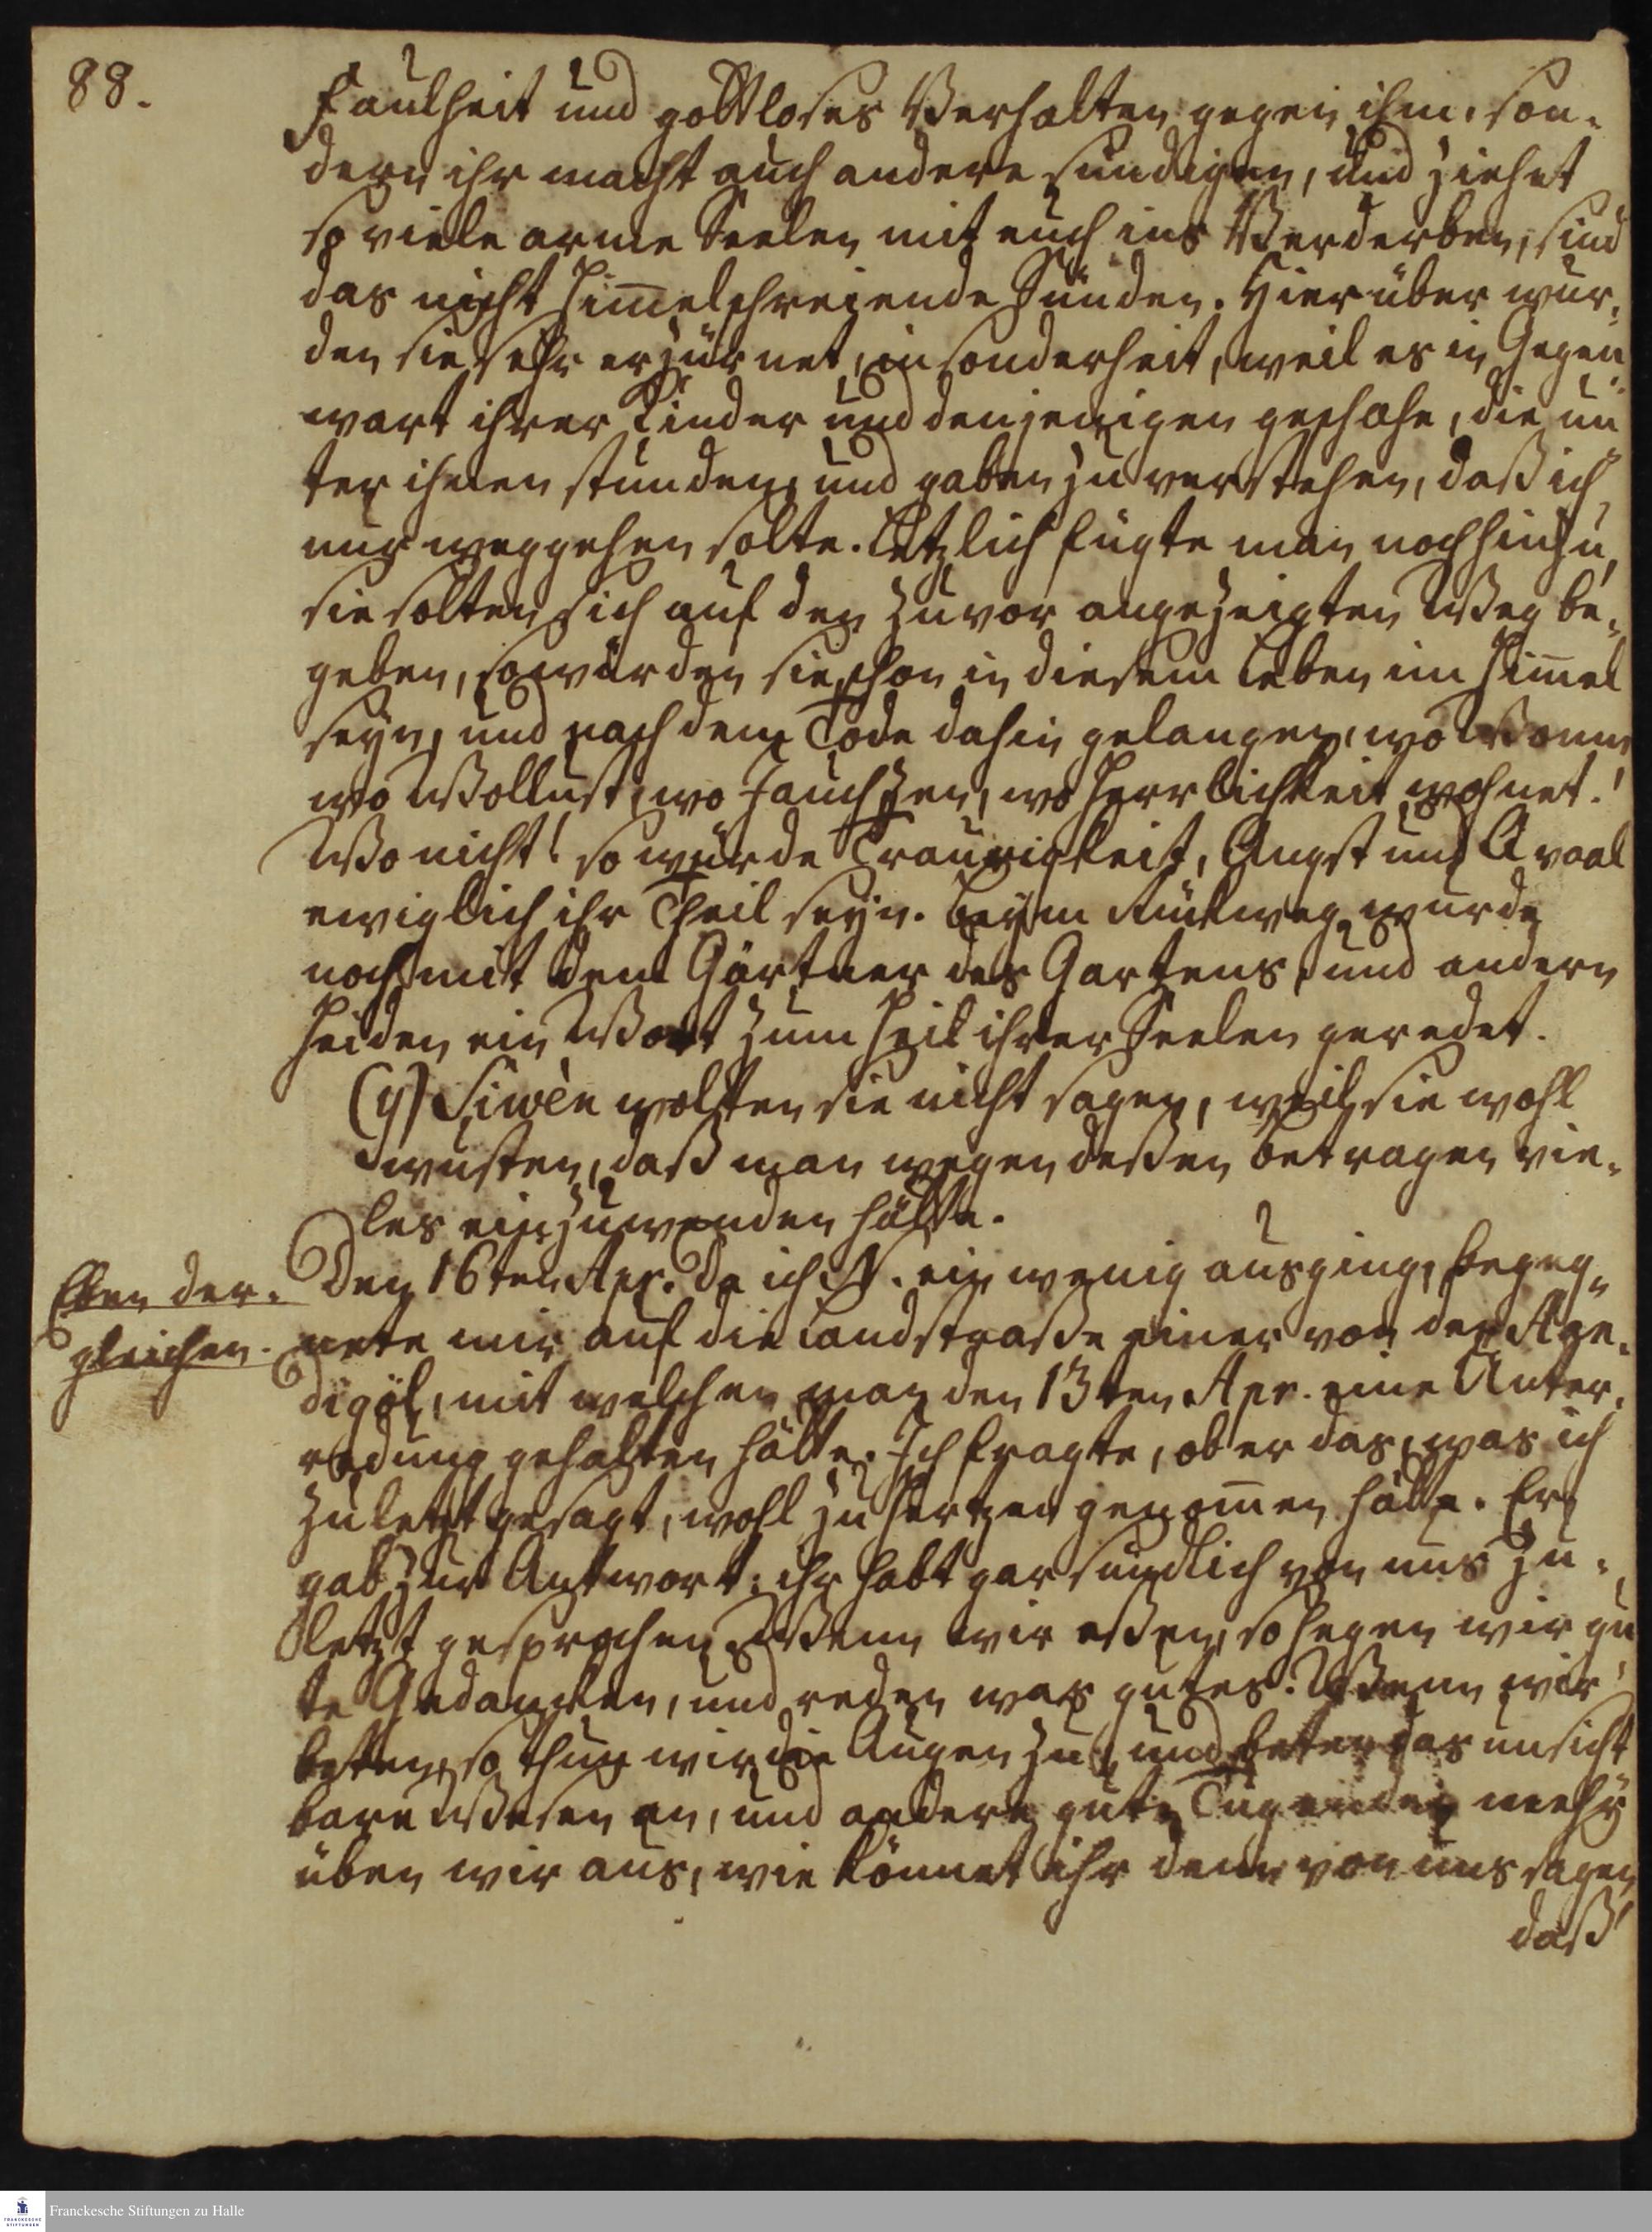 88.
Faulheit und gottloses Verhalten gegen ihm, son-
dern ihr macht auch andere sündigen, und ziehet
so viele arme Seelen mit euch ins Verderben, sind
das nicht him̅elschreiende Sünden. Hierüber wur-
den sie sehr erzürnet, insonderheit, weil es in Gegen-
wart ihrer Kinder und denjenigen geschahe, die un-
ter ihnen stunden, und gaben zu verstehen, daß ich
nur weggehen solte. Letzlich fügte man noch hinzu,
sie solten sich auf den zuvor angezeigten Weg be-
geben, so würden sie schon in diesem Leben im Him̅el
seyn, und nach dem Tode dahin gelangen, wo Wonne
wo Wollust, wo Jauchzen, wo Herrlichkeit wohnet!
Wo nicht! so würde Traurigkeit, Angst und Qvaal
ewiglich ihr Theil seyn. Beym Rückweg wurde
noch mit dem Gärtner des Gartens, und andern
Heiden ein Wort zum Heil ihrer Seelen geredet.
(y) Siwèn wolten sie nicht sagen, weil sie wohl
wusten, daß man wegen deßen betragen vie-
les einzuwenden hätte.
Eben der-
gleichen.
Den 16ten Apr. Da ich N. ein wenig ausging, begeg-
nete mir auf die Landstraße einer von den Age-
digöl, mit welchen man den 13ten Apr. eine Unter-
redung gehalten hätte. Ich fragte, ob er das, was ich
zuletzt gesagt, wohl zu Hertzen genom̅en hätte. Er
gab zur Antwort: ihr habt gar sündlich von uns zu-
letzt gesprochen. Wenn wir eßen, so hegen wir gu-
te Gedancken, und reden was gutes. Wenn wir
beten, so thun wir die Augen zu, und beten das unsicht
bare Wesen an, und andere gute Tugenden mehr
üben wir aus, wie könnet ihr denn von uns sagen
daß
Franckesche Stiftungen zu Halle
FRANCKESCHE
STIFTUNGEN